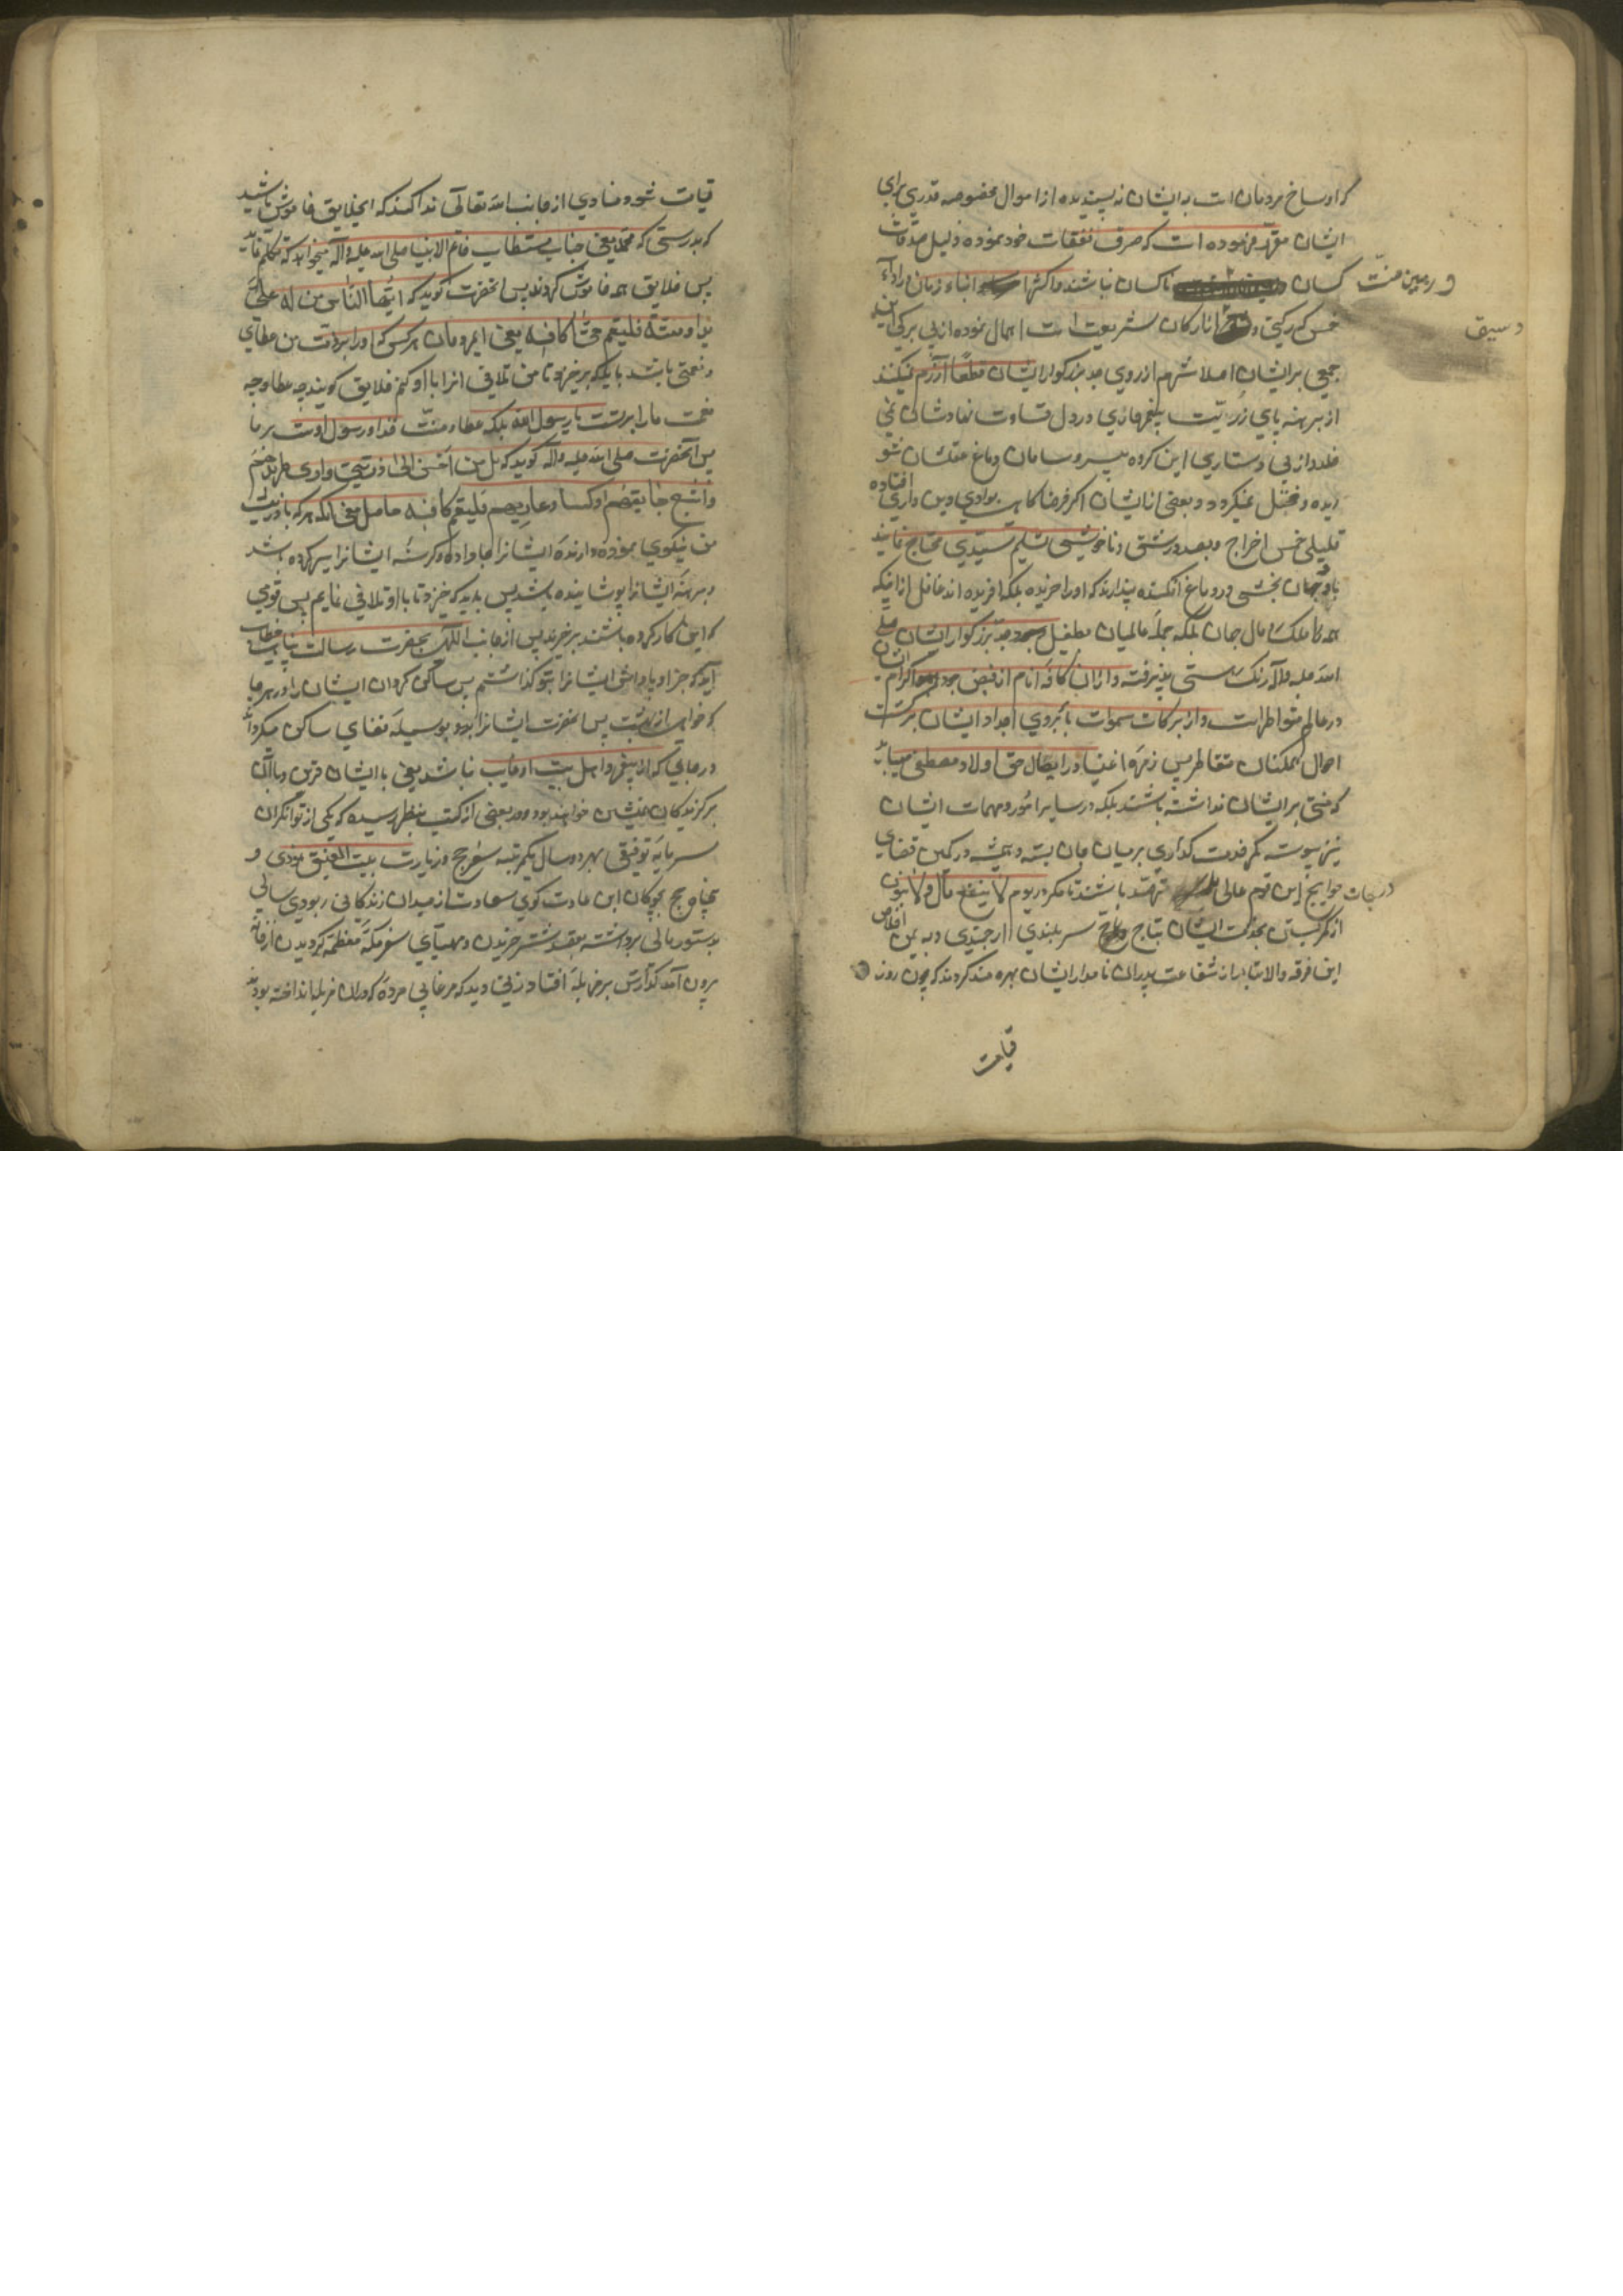 که اوساخ مردمان است به ایشان نه پسندیده از اموال مخصوصه قدری برای
ایشان مقرر فرموده است که صرف نفقات خود نموده ذلیل صدقات
کسان ناکسان نباشند و اکثر ابناء زمان در اداء
در همین منت
خمس که رکنی از ارکان شریعت است اهمال نموده از بی برکی
جمعی بر ایشان اصلا شرم از روی جد بزرگوار ایشان قطعا آزرم نمیکنند
از برهنه پای ذریت پیغمبر خاری در دل قساوت نهادشان نمی
خلد و از بی دستاری این کروه بیسر و سامان دماغ عقلشان شو
ریده و مختل نمیکردد و بعضی از ایشان اکر فرضا کاه بوادی دین داری افتاده
قلیلی خمس اخراج و بصد درشتی و ناخوشی تسلیم سیدی محتاج نمایند
باد جهان بخشی در دماغ افکنده پندارند که او را خریده بلکه افریده اند غافل از اینکه
همه ملک و مال جهان بلکه جمله عالمیان بطفیل جد بزرگوار ایشان صلی
الله علیه و آله رنک هستی پذیرفته و از ان کافه انام از فیض اکرام ایشان
در عالم متواطر است و از برکات سموات بآبروی اجداد ایشان بر کشت
احوال همکنان متقاطر پس زمره اغنیا در ایصال حق اولاد مصطفی میباید
که منتی بر ایشان نداشته باشند بلکه در سایر امور و مهمات ایشان
نیز پیوسته کمر خدمت کذاری بر میان جان بسته و همیشه در کمین قضای
حوایج این قوم عالی درجات باشند تا مکر در یوم لا ینفع مال و لا بنون
از کمر بستن بخدمت ایشان بتاج سر بلندی ارجمندی و به یمن اخلاص
این فرقه والاتبار از شفاعت پدران نامدار ایشان بهره مند کردند که چون روز
قیامت
قیامت شود منادی از جانب الله تعالی ندا کند که ایخلایق خاموش باشید
که بدرستی که محمد یعنی جناب مستطاب خاتم الانبیا صلی الله علیه و آله میخواهد که تکلم نماید
پس خلایق همه خاموش کردند پس انحضرت کوید که ایها الناس من له علی
یدا و منة فلیقم حتی اکافیه یعنی ایمردمان هر کسی که او را بر ذمت من عطای
و نعمتی باشد باید که برخیزد تا من تلافی انرا با او کنم خلایق کویند چه عطا و چه
نعمت ما را بر تست یا رسول الله بلکه عطا و منت خدا و رسول اوست بر ما
پس آنحضرت صلی الله علیه و آله کوید که بل من احسن الی ذریتی و اوی
و اشبع جایعهم او کسا عاریهم فلیقم اکافیه حاصل معنی انکه هر که با ذریت
من نیکویی نموده و ارنده ایشانرا جا داده و کرسنه ایشانرا سیر کرده باشد
و برهنه ایشانرا پوشانیده باشد پس باید که خیزد تا با او تلافی نمایم پس قومی
که این کار کرده باشند برخیزند پس از جانب الله بحضرت رسالت پناه خطاب
آید که جزا و پاداش ایشانرا بتو کذاشتم پس ساکن کردان ایشان را در هر جا
که خواهی از بهشت پس انحضرت ایشانرا بوسیله ساکن میکرداند
در جایی که از پیغمبر و اهل بیت او غایب نباشد یعنی با ایشان قرین و با آن
برکزیدکان همنشین خواهند بود و در بعضی از کتب بنظر رسیده که یکی از توانکران
سرمایه توفیق بهر دو سال یکمرتبه سفر حج و زیارت بیت العتیق نمودی و
حج بچوکان این عادت کوی سعادت از میدان زندکانی ربودی سالی
بدستور مالی برداشته بقصد شتر خریدن و مهیای سفر مکه معظمه کردیدن از خانه
بیرون آمد کذارش بر مزبله افتاد زنی دید که مرغابی مرده که در ان مزبله انداخته بودند